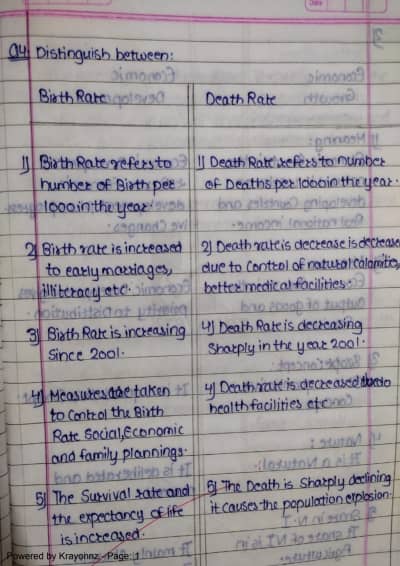 Date
Q4. Distinguish between:
Birth Rate
Death Rate
1) Birth Rate refers to
number of Birth per
1000 in the year.
1) Death Rate refers to number
of Deaths per 1000 in the year.
2) Birth rate is increased
to early marriages,
illiteracy etc.
2) Death rate is decrease is decrease
due to control of natural calamitic,
better medical facilities.
3) Birth Rate is increasing
Since 2001.
4) Death Rate is decreasing
Sharply in the year 2001.
4) Measures are taken
to control the Birth
Rate Social, Economic
and family plannings.
4) Death rate is decreased due to
health facilities etc
5) The Survival rate and
the expectancy of life
is increased.
5) The Death is Sharply declining
it causes the population explosion.
Powered by Krayonnz - Page: 1